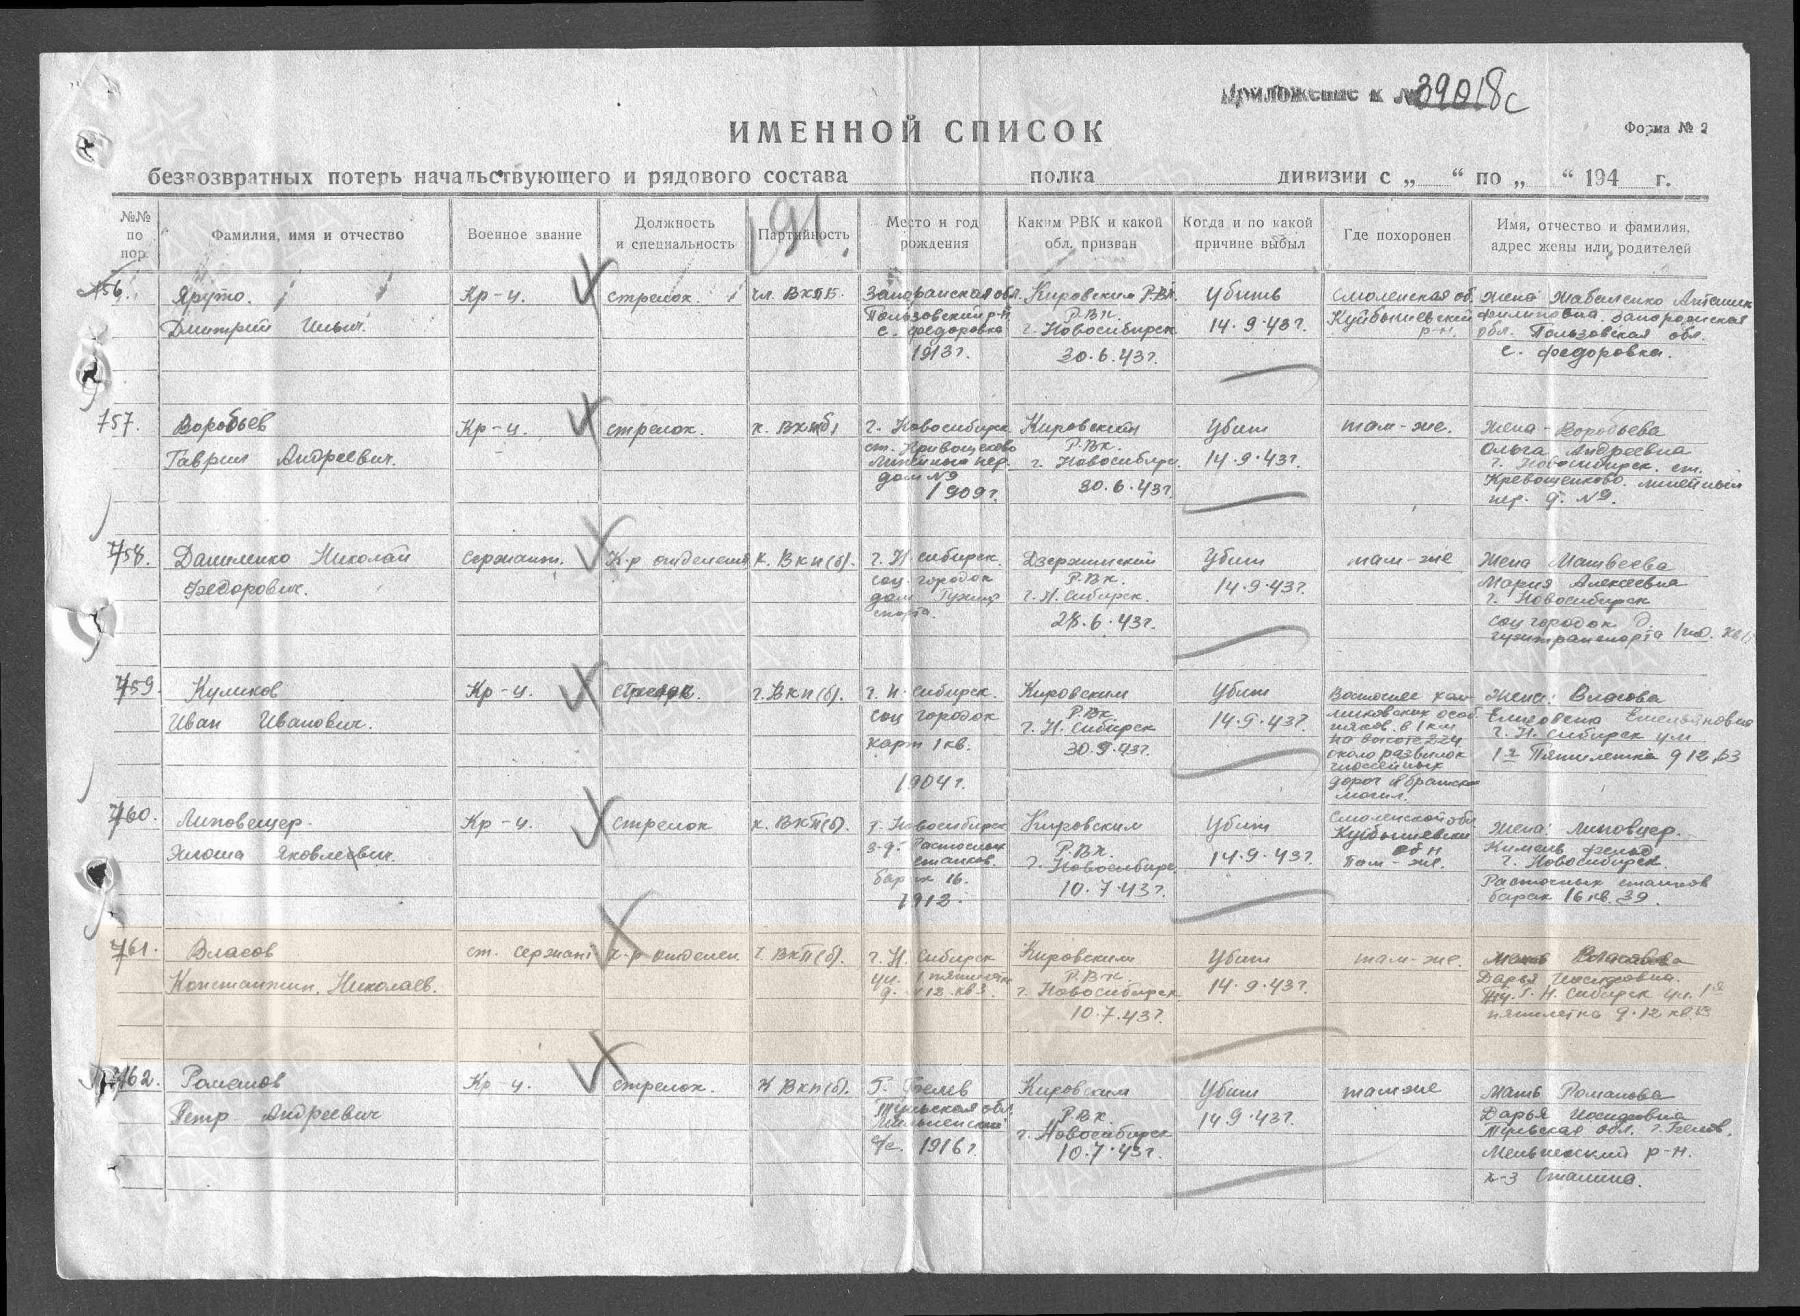 Приложение к № 39018с
ИМЕННОЙ СПИСОК
Форма № 2
безвозвратных потерь начальствующего и рядового состава полка дивизии с „ “ по „ “ 194 г.
№№ по пор.
Фамилия, имя и отчество
Военное звание
Должность и специальность
Партийность
Место и год рождения
Каким РВК и какой обл. призван
Когда и по какой причине выбыл
Где похоронен
Имя, отчество и фамилия, адрес жены или родителей
191
756.
Яруто.
Дмитрий Ильич.
Кр-ц.
стрелок.
чл. ВКПБ.
с. Федоровка
1913г.
Кировским РВК.
г. Новосибирск
30.6.43г.
Убит
14.9.43г.
Смоленская об.
Куйбышевский
р-н.
Жена
с. Федоровка.
757.
Воробьев
Гаврил Андреевич.
Кр-ц.
стрелок.
к. ВКП(б)
г. Новосибирск
ст. Кривощеково
дом №9
1909г.
Кировский
Р.В.К.
г. Новосибирск.
30.6.43г.
Убит
14.9.43г.
там-же.
Жена-Воробьева
Ольга Андреевна
г. Новосибирск. ст.
Кревощеково. линейный
пер. д. №9.
758.
Даниленко Николай
Федорович.
Сержант.
К-р отделения
к. ВКП(б).
г. Н. сибирск.
соц городок
дом Гужтр
спорта.
Дзержинский
Р.В.К.
г. Н. Сибирск.
28.6.43г.
Убит
14.9.43г.
там-же
Жена Матвеева
Мария Алексеевна
г. Новосибирск
соц городок д.
гужтранспорта
759.
Куликов
Иван Иванович.
Кр-ц.
стрелок.
г. Н. сибирск.
соц городок
карт 1 кв.
1904г.
Кировским
Р.В.К.
г. Н. Сибирск
30.9.43г.
Убит
14.9.43г.
в 1 км
на высоте 224
около развилок
шоссейных
дорог в братск
могил.
Жена: Власова
г. Н. Сибирск ул
1я Пятилетка
760.
Липовецер.
Яковлевич.
Кр-ц.
стрелок
к. ВКП(б).
г. Новосибирск
з-д. Расточных
станков.
барак 16.
1912.
Кировским
Р.В.К.
г. Новосибирск
10.7.43г.
Убит
14.9.43г.
Смоленской обл
Куйбышевский
там-же.
Жена: Липовцер.
г. Новосибирск.
Расточных станков
барак 16 кв. 39.
761.
Власов
Константин. Николаев.
ст. сержант
к-р отделен
г. Н. Сибирск
ул. 1 пятилетка
д. 12 кв3.
Кировским
Р.В.К.
г. Новосибирск
10.7.43г.
Убит
14.9.43г.
там-же.
Дарья Иосифовна.
г. Н. Сибирск ул. 1я
пятилетка д. 12
762.
Романов
Петр Андреевич
Кр-ц.
стрелок.
к ВКП(б).
Г. Белев
Тульская обл.
с/с. 1916г.
Кировским
Р.В.К.
г. Новосибирск
10.7.43г.
Убит
14.9.43г.
там же
Мать Романова
Дарья Иосифовна
Тульская обл. г. Белев.
р-н.
к-з Сталина.